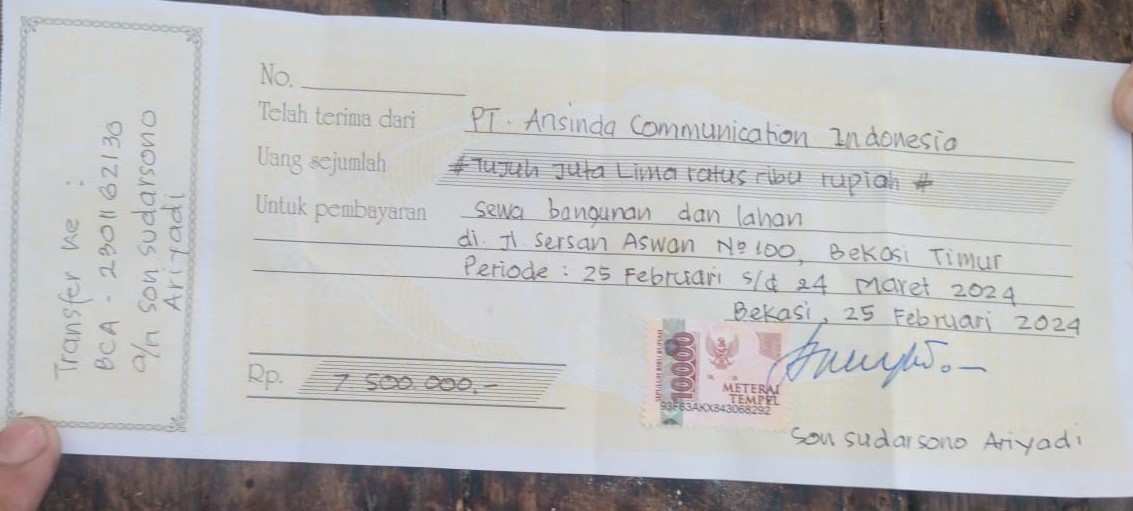 Transfer ke :
BCA - 2301162130
a/n son sudarsono
Ariyadi
No.
Telah terima dari PT. Ansinda Communication Indonesia
Uang sejumlah # Tujuh Juta Lima ratus ribu rupiah #
Untuk pembayaran sewa bangunan dan lahan
di. Jl. Sersan Aswan No 100, Bekasi Timur
Periode : 25 Februari s/d 24 Maret 2024
Bekasi, 25 Februari 2024
Rp. 7.500.000.-
SEPULUH RIBU RUPIAH
10000
METERAI
TEMPEL
93F63AKX843068292
Son sudarsono Ariyadi